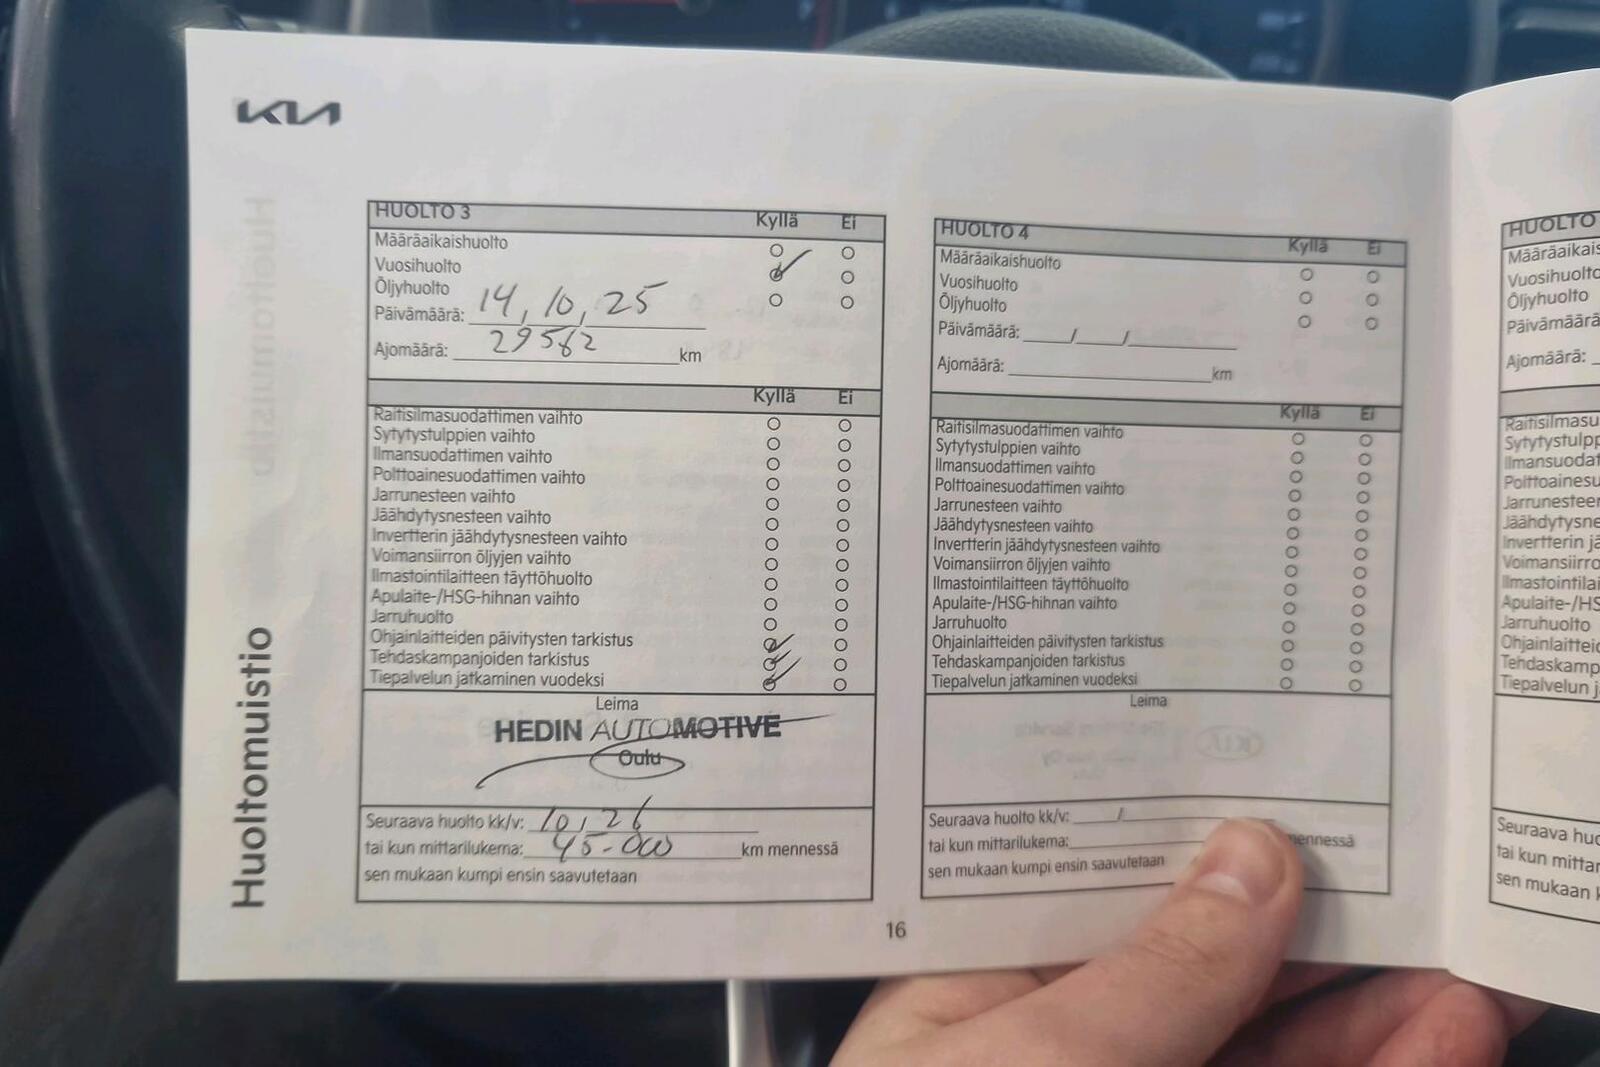 KIA
Huoltomuistio
HUOLTO 3 Kyllä Ei
Määräaikaishuolto
Vuosihuolto
Öljyhuolto
Päivämäärä: 14, 10, 25
Ajomäärä: 29582 km
Kyllä Ei
Raitisilmasuodattimen vaihto
Sytytystulppien vaihto
Ilmansuodattimen vaihto
Polttoainesuodattimen vaihto
Jarrunesteen vaihto
Jäähdytysnesteen vaihto
Invertterin jäähdytysnesteen vaihto
Voimansiirron öljyjen vaihto
Ilmastointilaitteen täyttöhuolto
Apulaite-/HSG-hihnan vaihto
Jarruhuolto
Ohjainlaitteiden päivitysten tarkistus
Tehdaskampanjoiden tarkistus
Tiepalvelun jatkaminen vuodeksi
Leima
HEDIN AUTOMOTIVE
Oulu
Seuraava huolto kk/v: 10, 26
tai kun mittarilukema: 45-000 km mennessä
sen mukaan kumpi ensin saavutetaan
HUOLTO 4 Kyllä Ei
Määräaikaishuolto
Vuosihuolto
Öljyhuolto
Päivämäärä: ____/____/____
Ajomäärä: ____ km
Kyllä Ei
Raitisilmasuodattimen vaihto
Sytytystulppien vaihto
Ilmansuodattimen vaihto
Polttoainesuodattimen vaihto
Jarrunesteen vaihto
Jäähdytysnesteen vaihto
Invertterin jäähdytysnesteen vaihto
Voimansiirron öljyjen vaihto
Ilmastointilaitteen täyttöhuolto
Apulaite-/HSG-hihnan vaihto
Jarruhuolto
Ohjainlaitteiden päivitysten tarkistus
Tehdaskampanjoiden tarkistus
Tiepalvelun jatkaminen vuodeksi
Leima
Seuraava huolto kk/v: ____/____
tai kun mittarilukema: ____ mennessä
sen mukaan kumpi ensin saavutetaan
16
HUOLTO
Määräaikais
Vuosihuolto
Öljyhuolto
Päivämäärä
Ajomäärä:
Raitisilmasu
Sytytystulpp
Ilmansuodat
Polttoainesu
Jarrunesteen
Jäähdytysne
Invertterin jä
Voimansiirro
Ilmastointilai
Apulaite-/HS
Jarruhuolto
Ohjainlaittei
Tehdaskamp
Tiepalvelun j
Seuraava huo
tai kun mittar
sen mukaan k